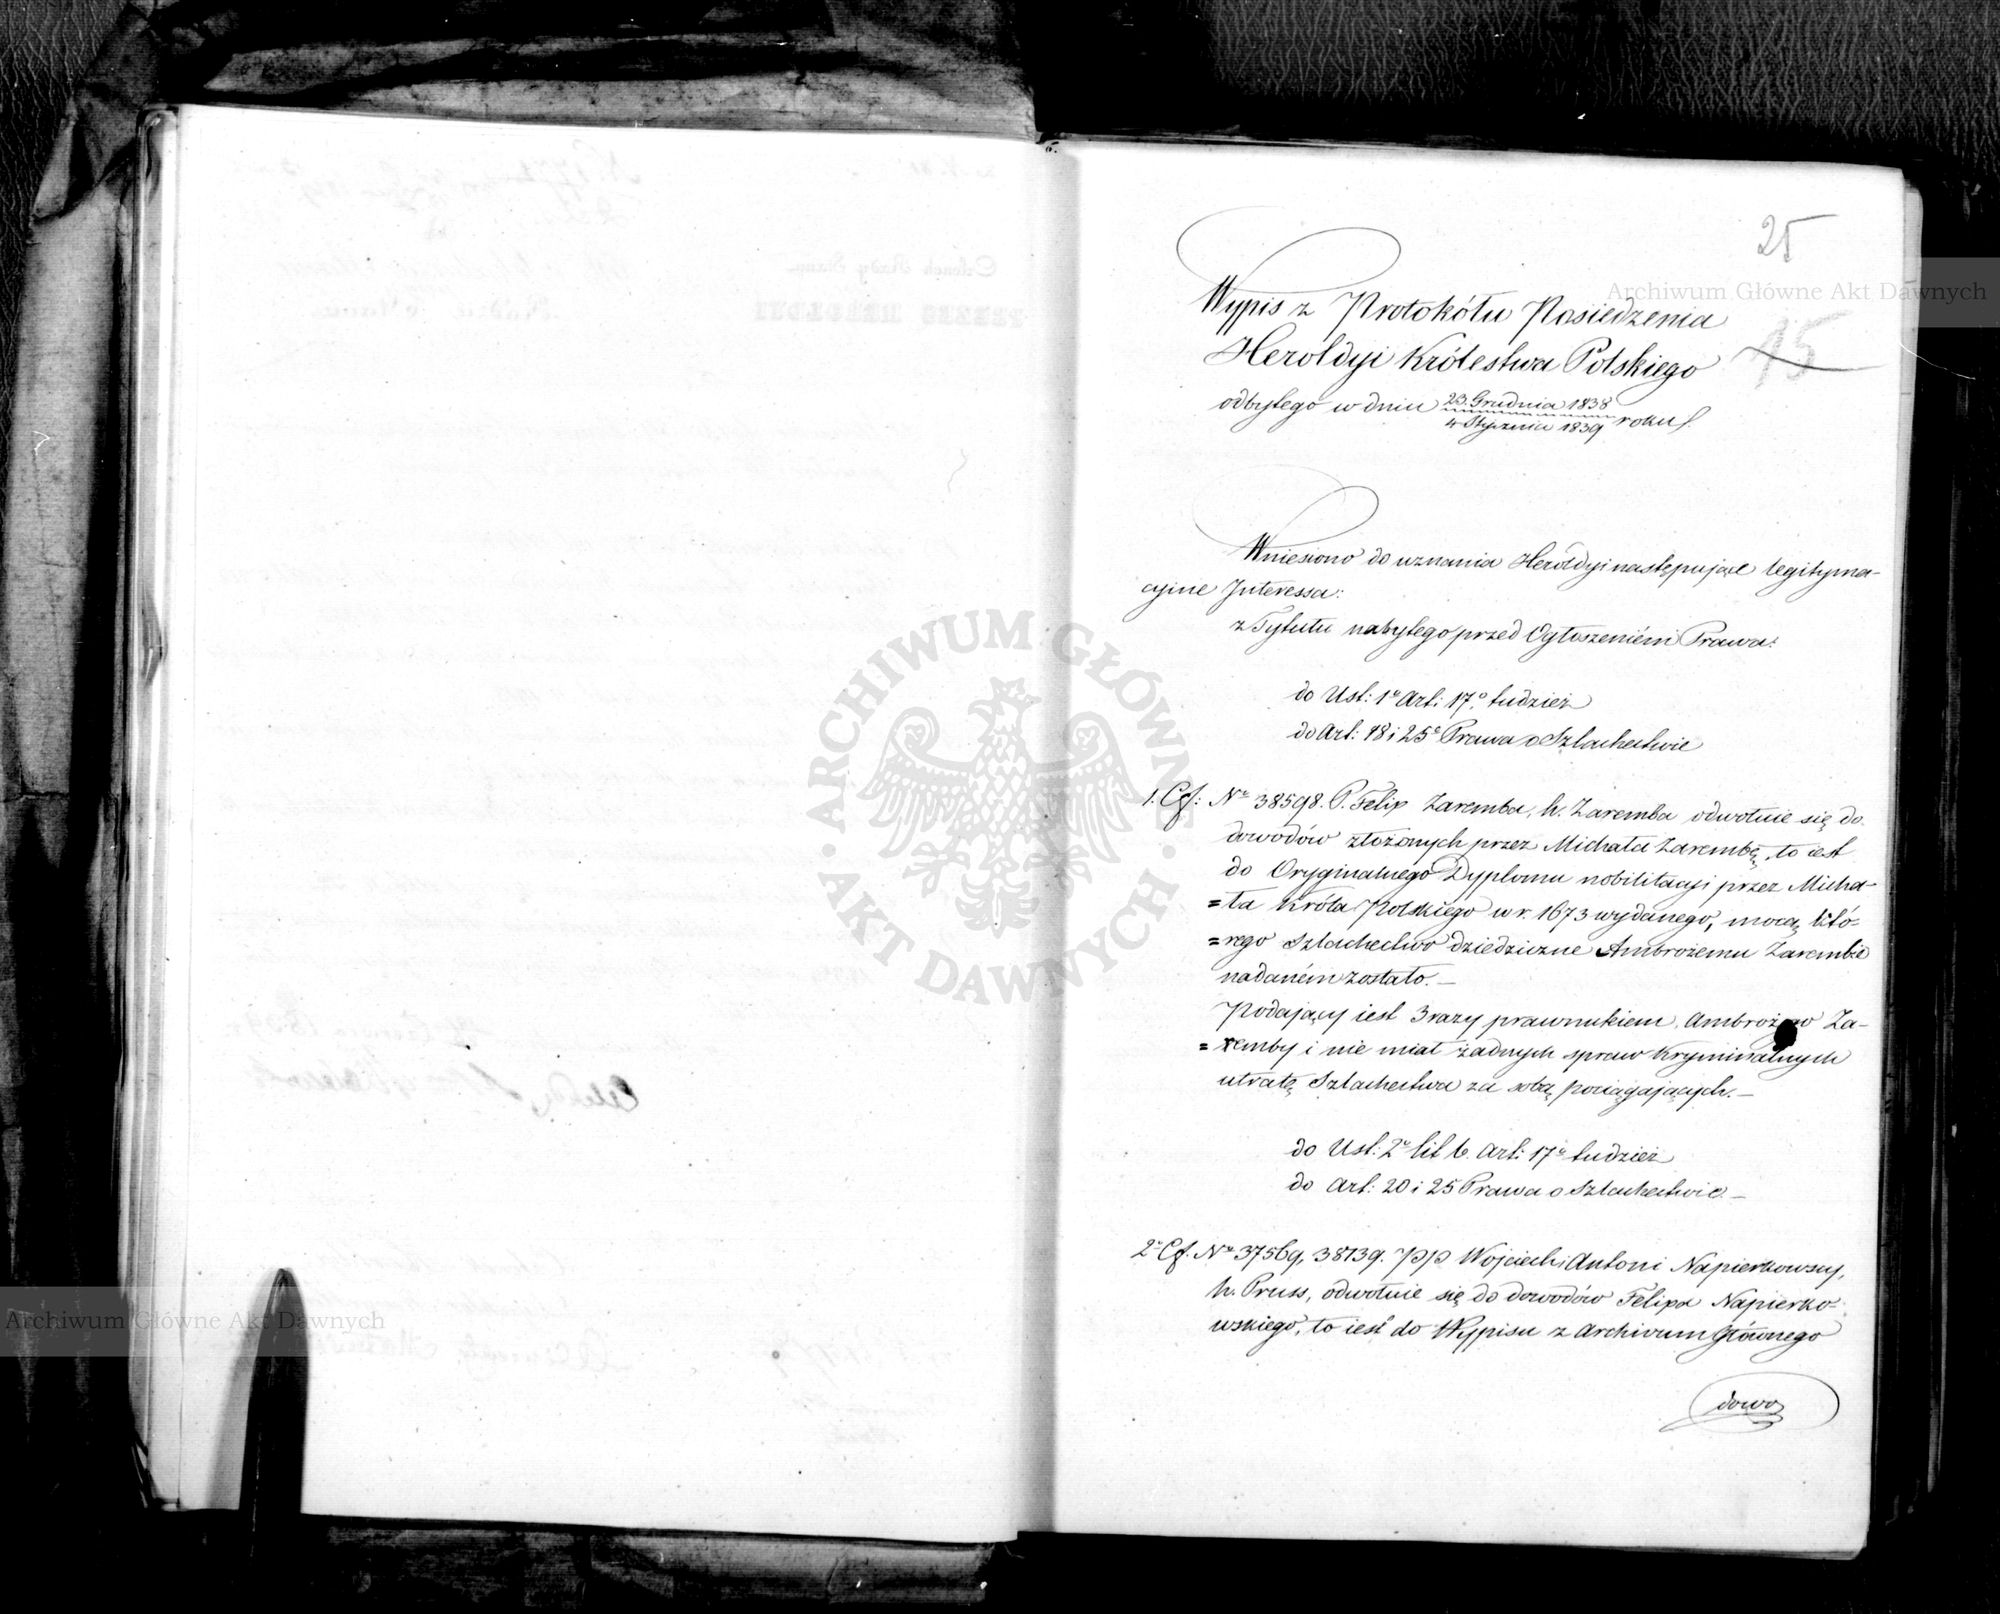 25
Wypis z Protokółu Posiedzenia
15
Heroldyi Królestwa Polskiego
odbytego w dniu 23. Grudnia 1838
4 Stycznia 1839 roku.
Wniesiono do uznania Heroldyi następujące legityma-
cyine Interessa:
z Tytułu nabytego przed Ogłoszeniem Prawa:
do Ust: 1o Art: 17o tudzież
do Art: 18 i 25o Prawa o Szlachectwie
1. Cf: No 38598. P. Felix Zaremba, h. Zaremba odwołuie się do
dowodów złożonych przez Michała Zarembę, to iest
do Oryginalnego Dyplomu nobilitacyi przez Micha-
=ła Króla Polskiego w r. 1673 wydanego, mocą któ-
=rego Szlachectwo dziedziczne Ambrożemu Zarembie
nadaném zostało.—
Podający iest 3 razy prawnukiem Ambrożego Za-
=remby i nie miał żadnych spraw Kryminalnych
utratę Szlachectwa za sobą pociągających.—
do Ust: 2o lit b. Art: 17o tudzież
do Art: 20 i 25 Prawa o Szlachectwie.—
2o Cf. No 37569, 38739. PP Wojciech i Antoni Napierkowscy,
h. Pruss, odwołuie się do dowodów Felixa Napierko-
wskiego, to iest do Wypisu z Archivum Głównego
dowo
Archiwum Główne Akt Dawnych
Archiwum Główne Akt Dawnych
ARCHIWUM GŁÓWNE
AKT DAWNYCH